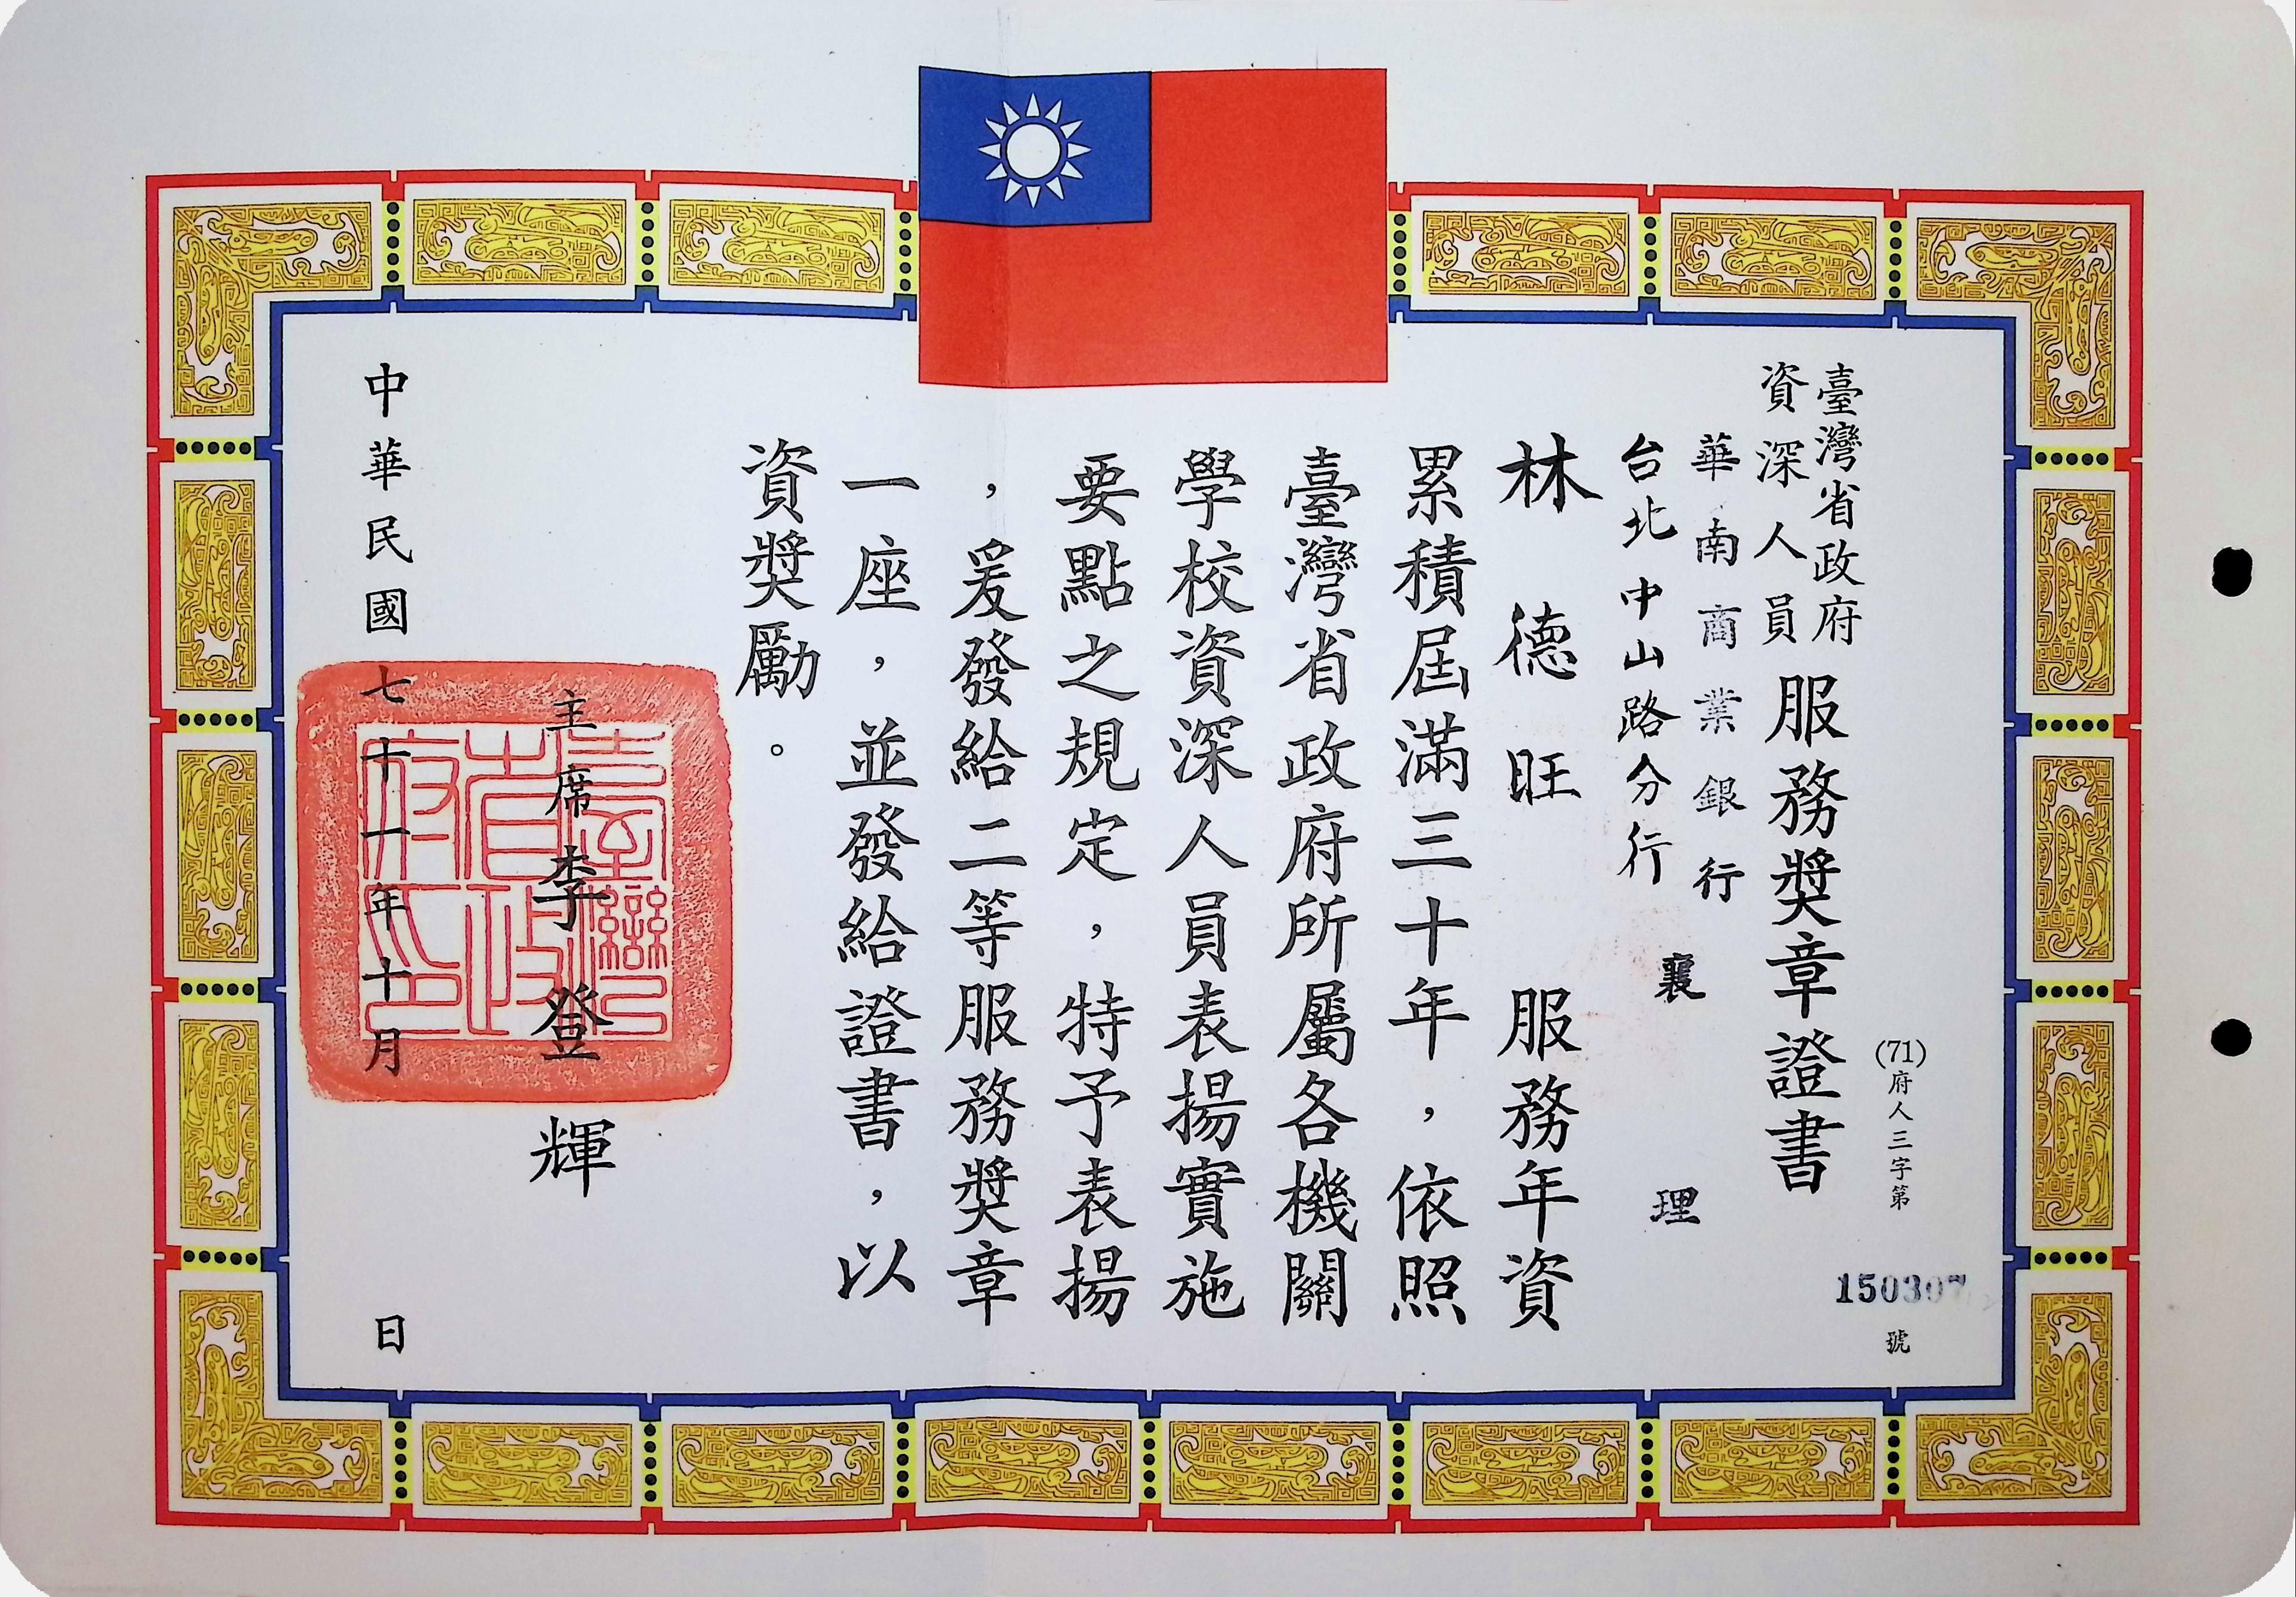 (71)府人三字第150307號
臺灣省政府
資深人員
服務獎章證書
華南商業銀行
台北中山路分行
襄理
林德旺 服務年資
累積屆滿三十年，依照
臺灣省政府所屬各機關
學校資深人員表揚實施
要點之規定，特予表揚
，爰發給二等服務獎章
一座，並發給證書，以
資獎勵。
主席 李登輝
臺灣
省政
府印
中華民國七十一年十月 日